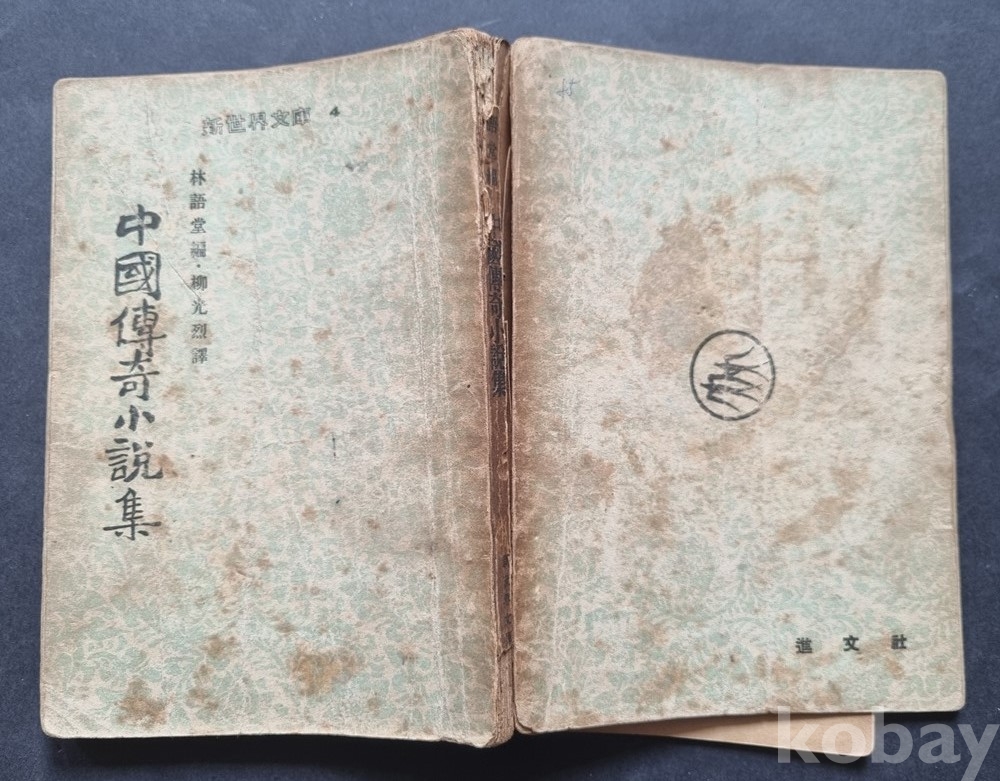 新世界文庫 4
林語堂編·柳光烈譯
中國傳奇小說集
傳奇小說集
45
進文社
kobay